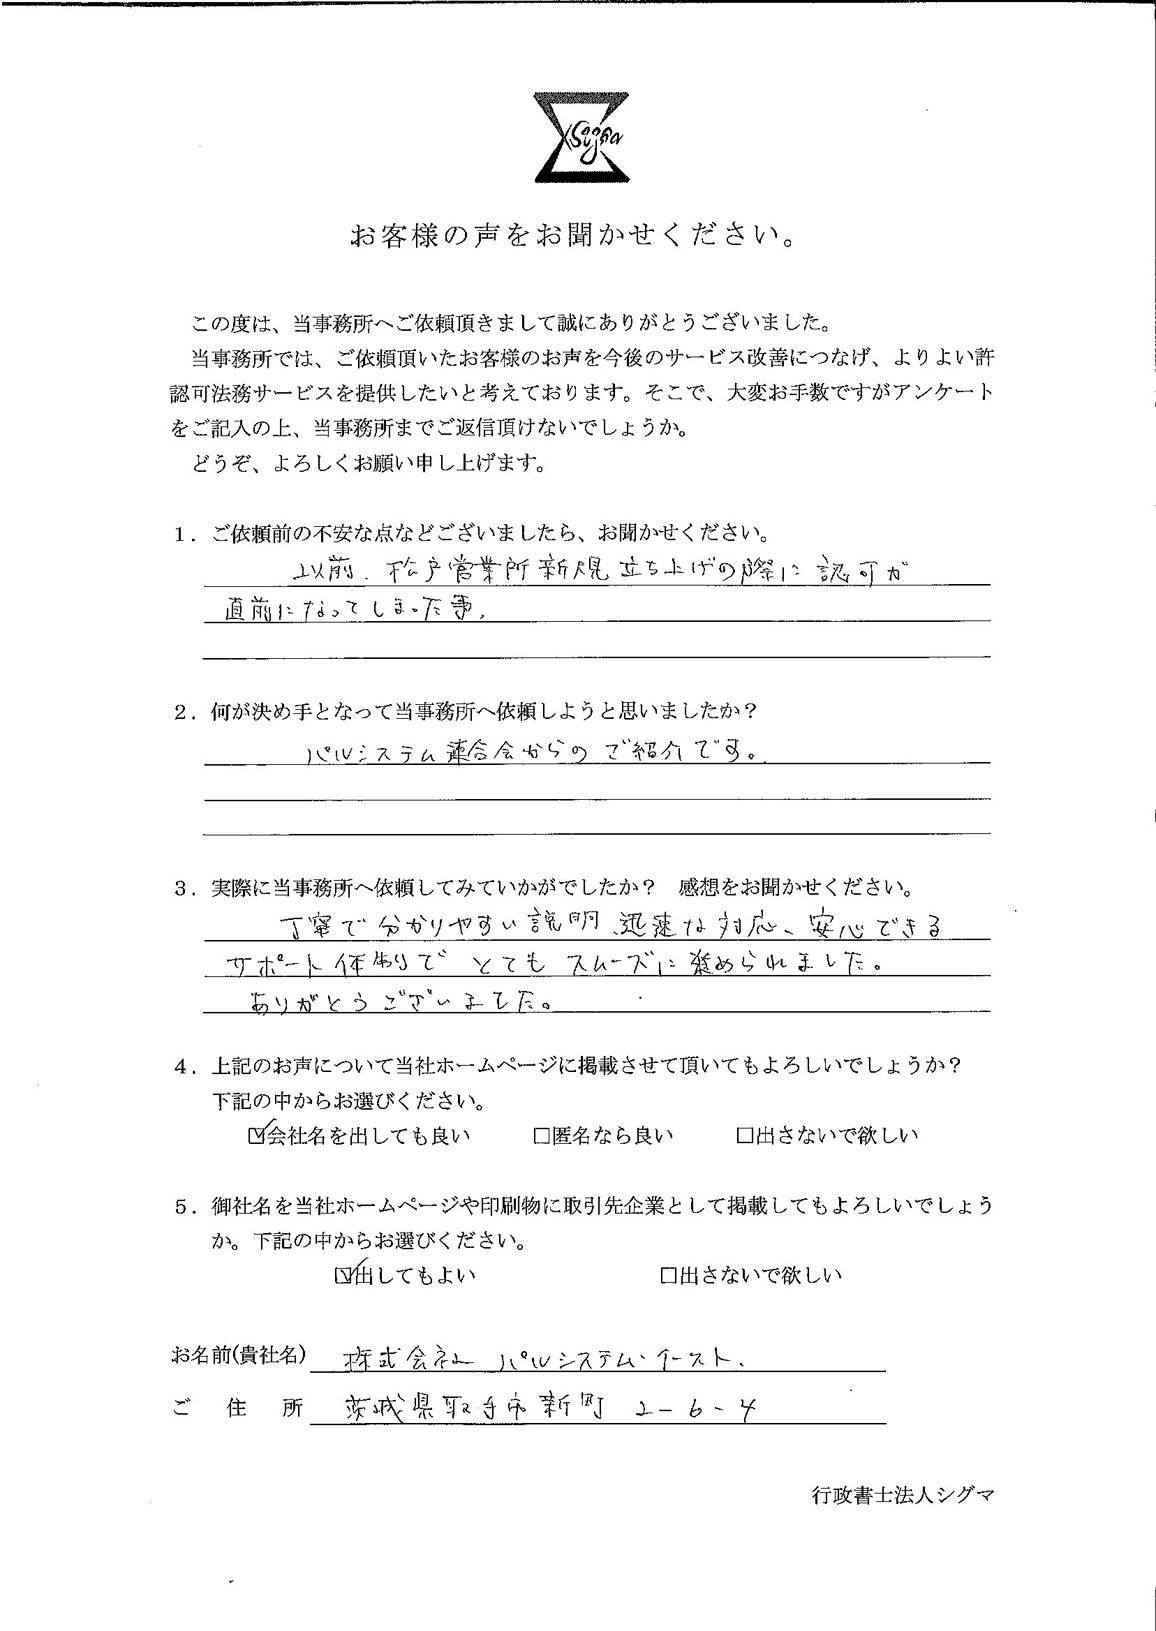 Sigma
お客様の声をお聞かせください。
この度は、当事務所へご依頼頂きまして誠にありがとうございました。
当事務所では、ご依頼頂いたお客様のお声を今後のサービス改善につなげ、よりよい許
認可法務サービスを提供したいと考えております。そこで、大変お手数ですがアンケート
をご記入の上、当事務所までご返信頂けないでしょうか。
どうぞ、よろしくお願い申し上げます。
1．ご依頼前の不安な点などございましたら、お聞かせください。
以前、松戸営業所新規立ち上げの際に認可が
直前になってしまった事。
2．何が決め手となって当事務所へ依頼しようと思いましたか？
パルシステム連合会からのご紹介です。
3．実際に当事務所へ依頼してみていかがでしたか？　感想をお聞かせください。
丁寧で分かりやすい説明、迅速な対応、安心できる
サポート体制でとてもスムーズに進められました。
ありがとうございました。
4．上記のお声について当社ホームページに掲載させて頂いてもよろしいでしょうか？
下記の中からお選びください。
☑会社名を出しても良い　□匿名なら良い　□出さないで欲しい
5．御社名を当社ホームページや印刷物に取引先企業として掲載してもよろしいでしょう
か。下記の中からお選びください。
☑出してもよい　□出さないで欲しい
お名前(貴社名) 株式会社 パルシステム・イースト.
ご住所 茨城県取手市新町 2-6-4
行政書士法人シグマ